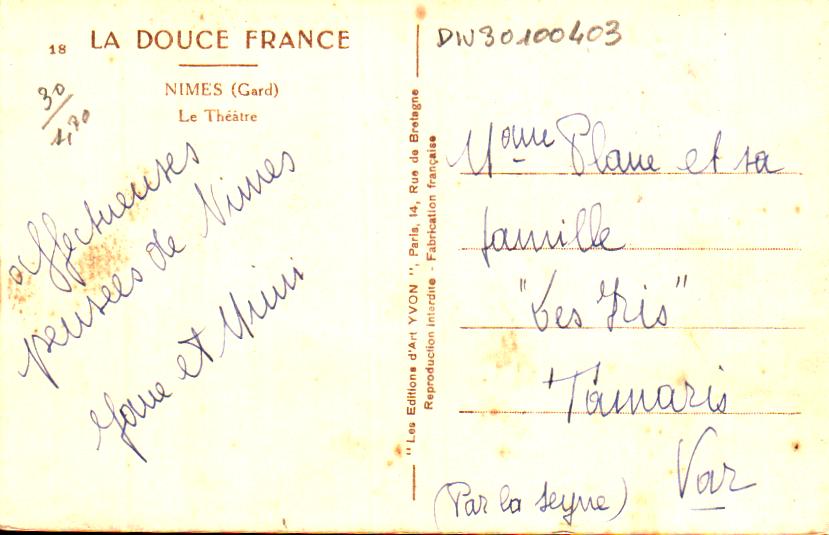 18 LA DOUCE FRANCE
NIMES (Gard)
Le Théâtre
30
1,20
affectueuses
pensées de Nimes
et Mimi
" Les Editions d'Art YVON ", Paris, 14, Rue de Bretagne
Reproduction interdite - Fabrication française
DIV30100403
Mame Plane et sa
famille
"Les Iris"
Tamaris
Var
(Par la Seyne)